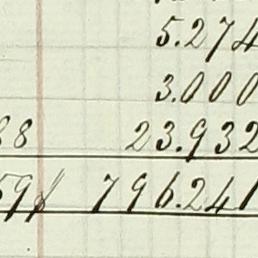 5.274
3.000
88 23.932
59$ 796.241